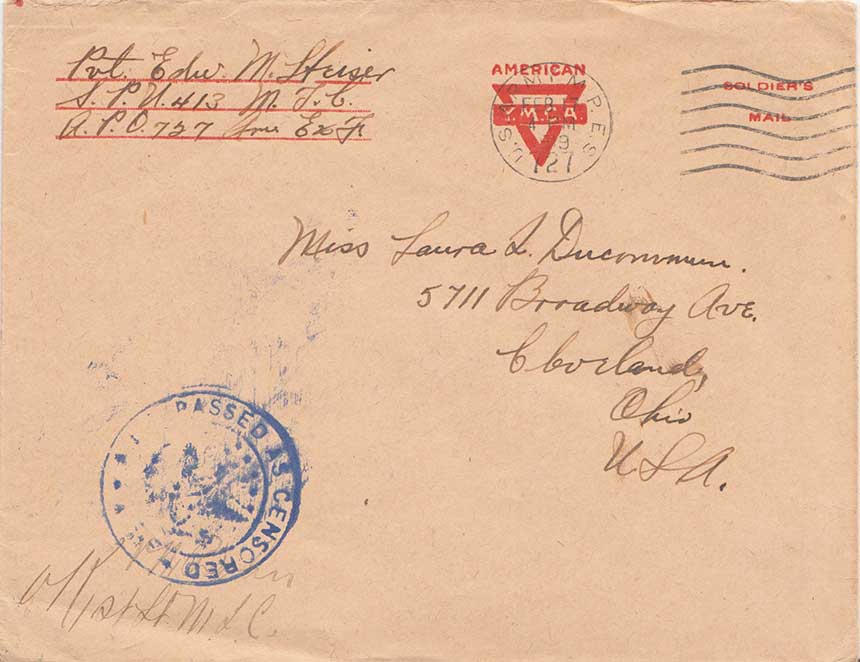 Pvt. Edw. M. Heiser
S.P.U. 413 M.T.C.
A.P.O. 727 Am. Ex F.
AMERICAN
Y.M.C.A.
FEB
4 PM
727
SOLDIER'S
MAIL
Miss Laura L. Ducommun.
5711 Broadway Ave.
Cleveland,
Ohio
U.S.A.
PASSED AS CENSORED
OK
1st Lt M.T.C.